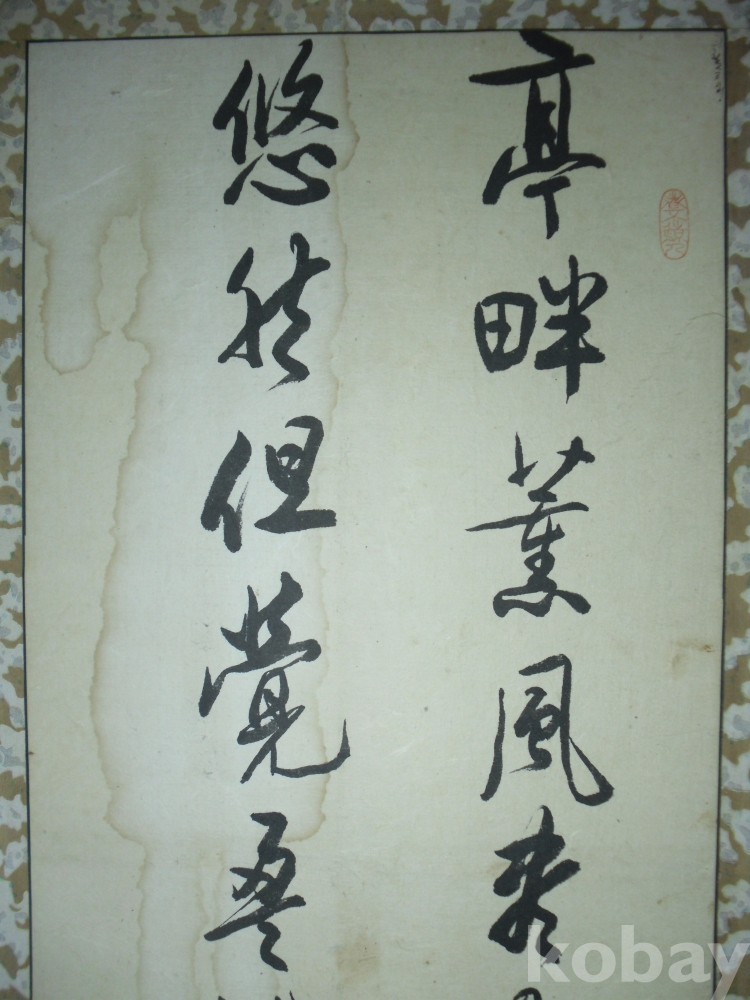 亭畔薰風來
悠然但覺吾
kobay